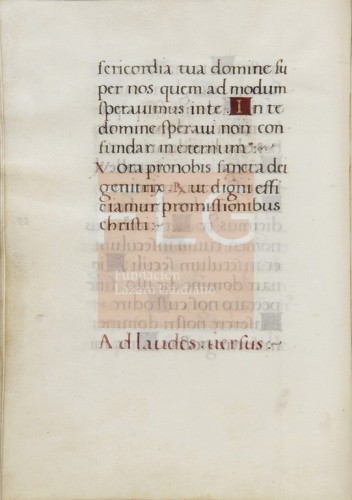 sericordia tua domine su
per nos quem ad modum
speravimus in te In te
domine speraui non con
fundar in eternum
℣ ora pro nobis sancta dei
genitrix ℟ ut digni effi
ciamur promissionibus
christi :
FLG
Fundación
Ad laudes uersus :